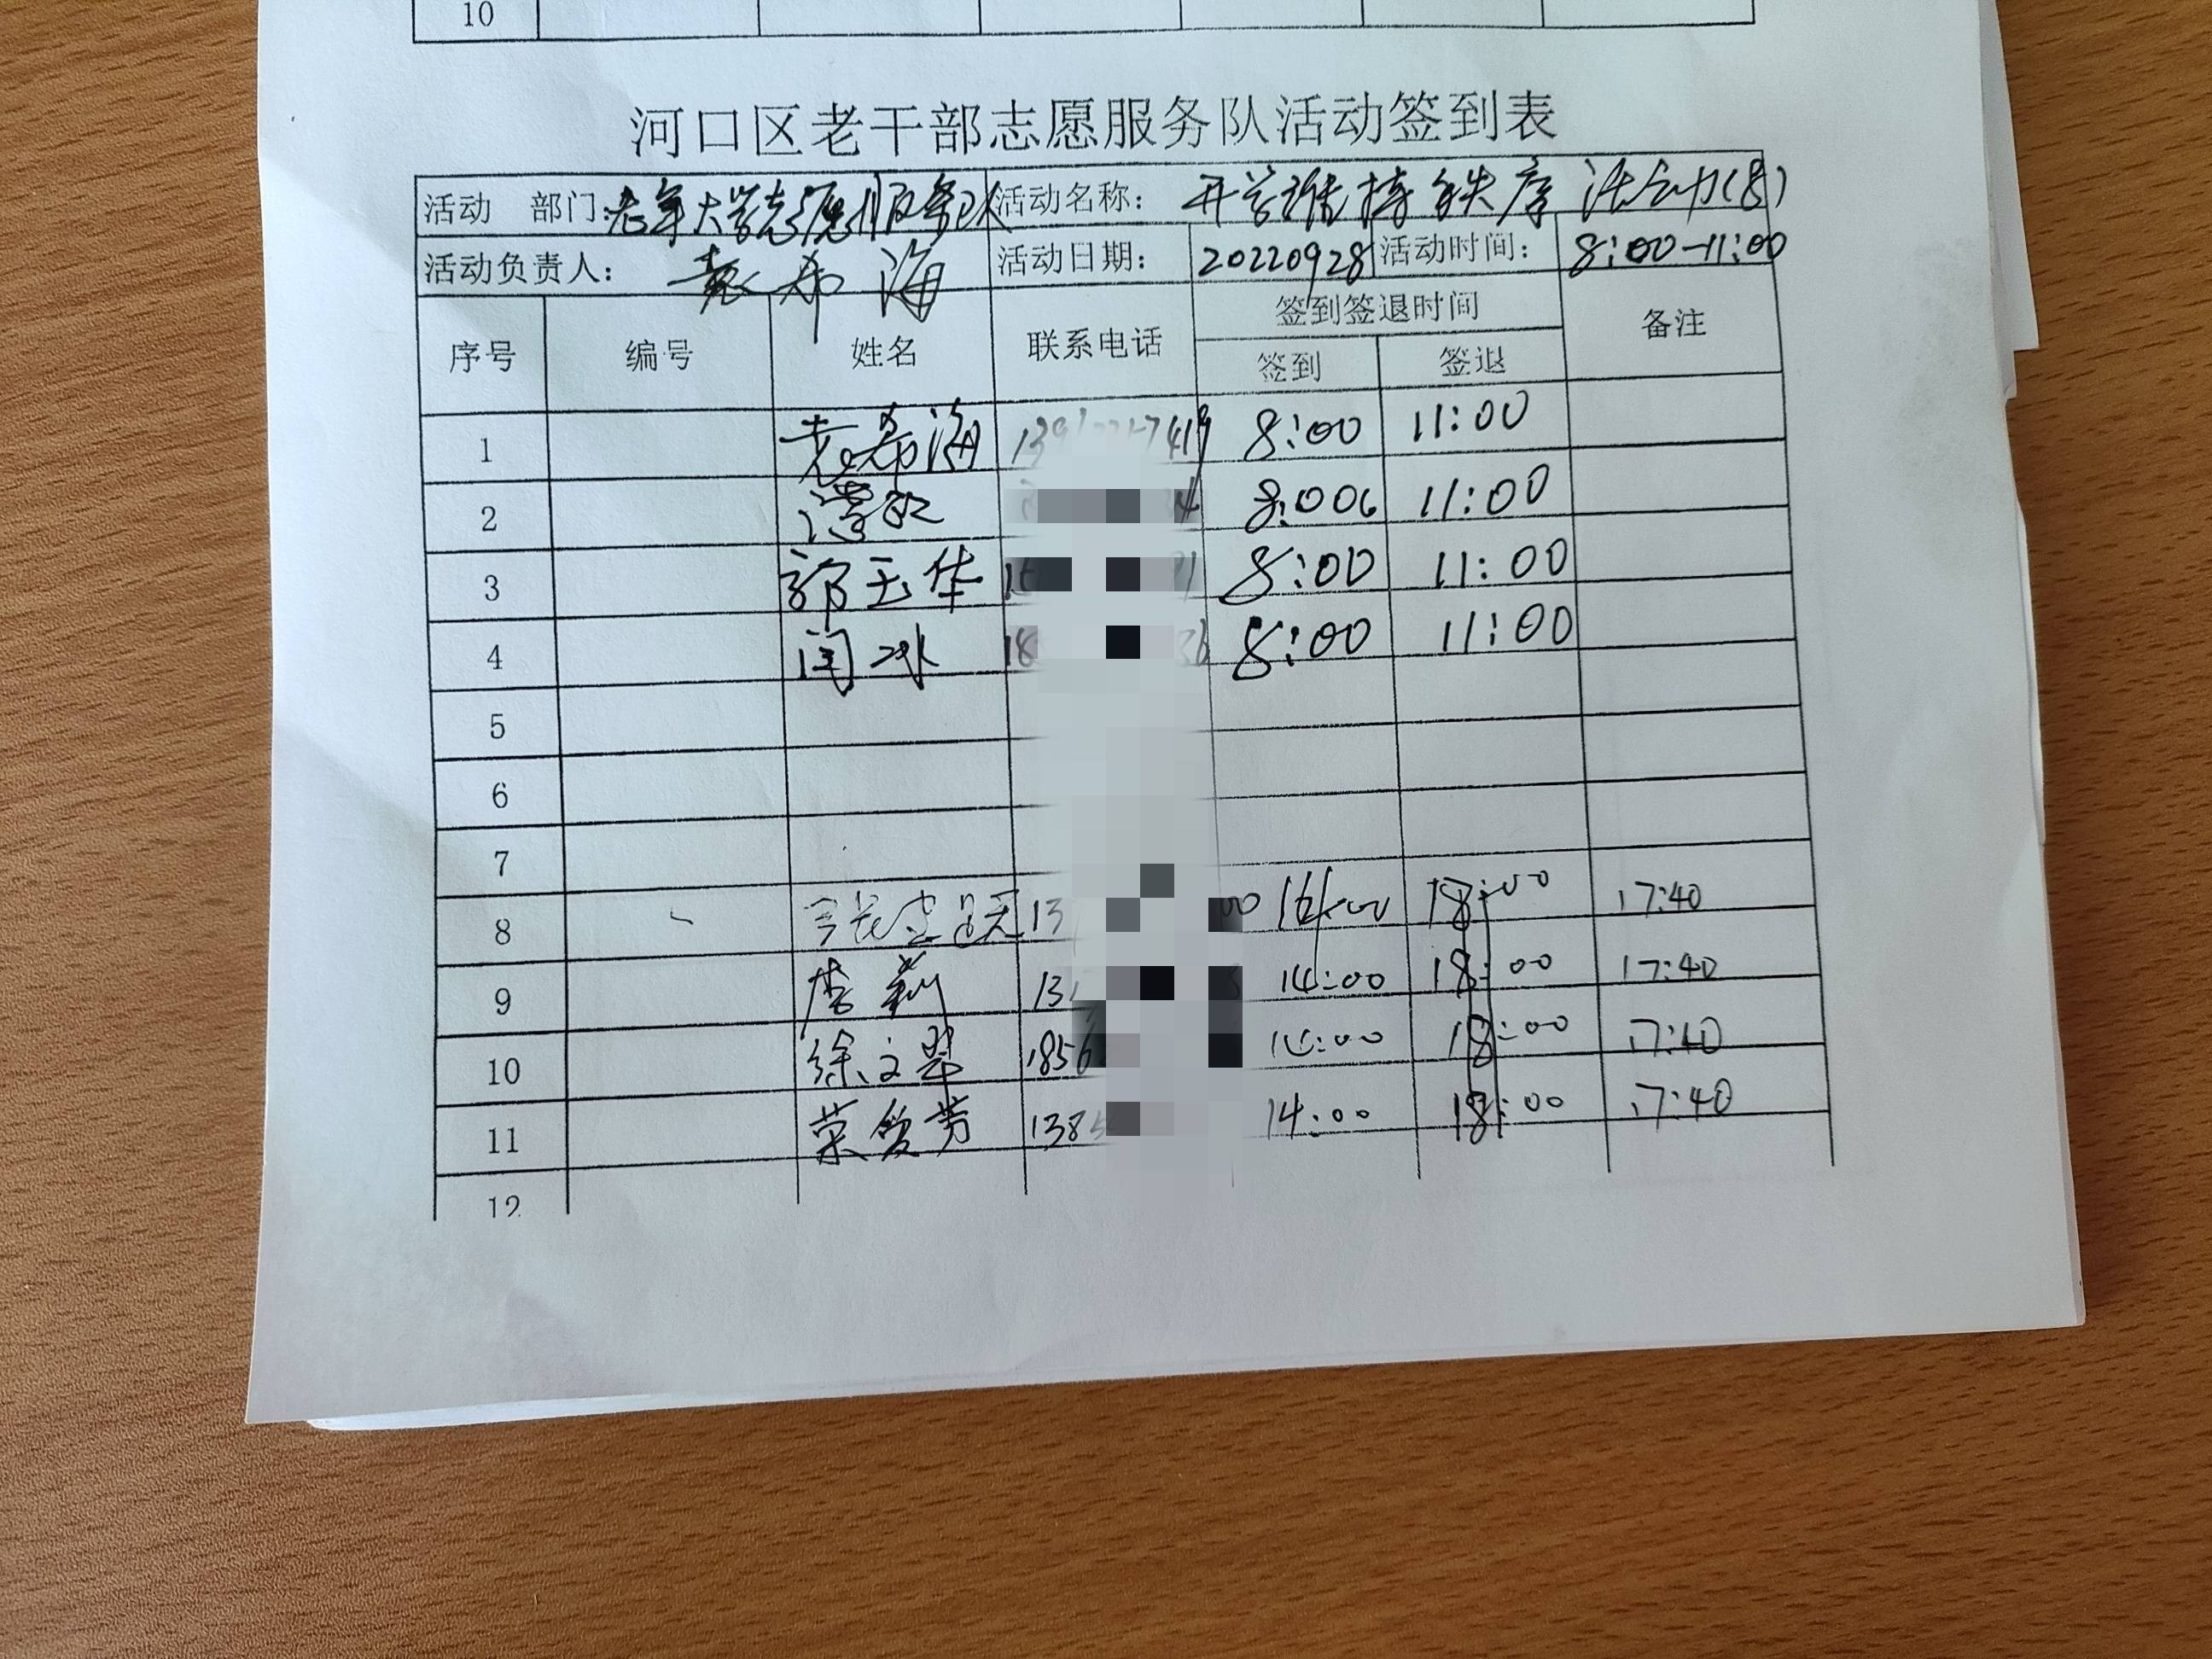 10
河口区老干部志愿服务队活动签到表
活动 部门:老年大学志愿服务队 活动名称: 开学维持秩序活动(8)
活动负责人: 袁希海 活动日期: 20220928 活动时间: 8:00-11:00
序号 编号 姓名 联系电话 签到签退时间 备注
签到 签退
1 袁希海 8:00 11:00
2 8:00 11:00
3 郭玉华 8:00 11:00
4 闫冰 8:00 11:00
5
6
7
8 13 18:00 17:40
9 李莉 13 14:00 18:00 17:40
10 徐文翠 1856 14:00 18:00 17:40
11 荣爱芳 1385 14:00 18:00 17:40
12